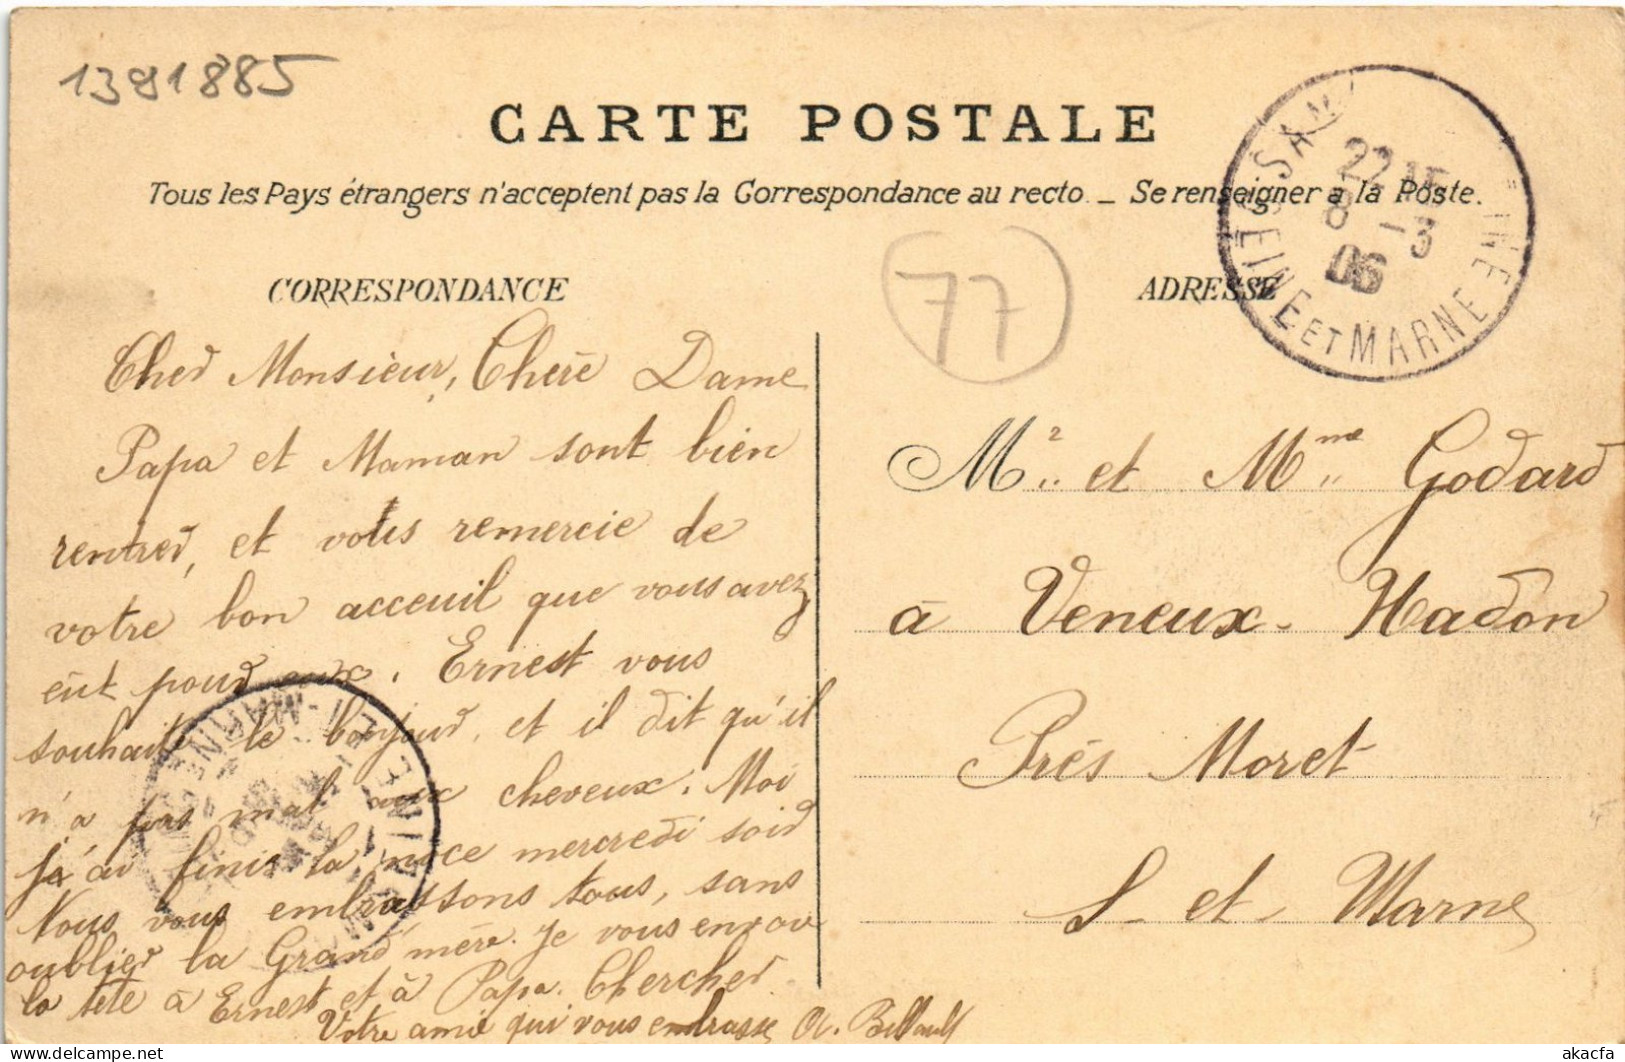 1391885
CARTE POSTALE
Tous les Pays étrangers n'acceptent pas la Correspondance au recto. — Se renseigner a la Poste.
22 15
8 -3
06
SEINE ET MARNE
77
CORRESPONDANCE
ADRESSE
Cher Monsieur, Chère Dame
Papa et Maman sont bien
rentrer, et vous remercie de
votre bon acceuil que vous avez
eut pour eux. Ernest vous
souhaite le bonjour, et il dit qu'il
n'a pas mal aux cheveux. Moi
j'ai finis la noce mercredi soir
Nous vous embrassons tous, sans
oublier la Grand'mère. Je vous envoie
la tête à Ernest et à Papa. Chercher
Votre amie qui vous embrasse A. Billault
Mr et Mme Godard
à Veneux-Nadon
Près Moret
S- et- Marne
akacfa
www.delcampe.net